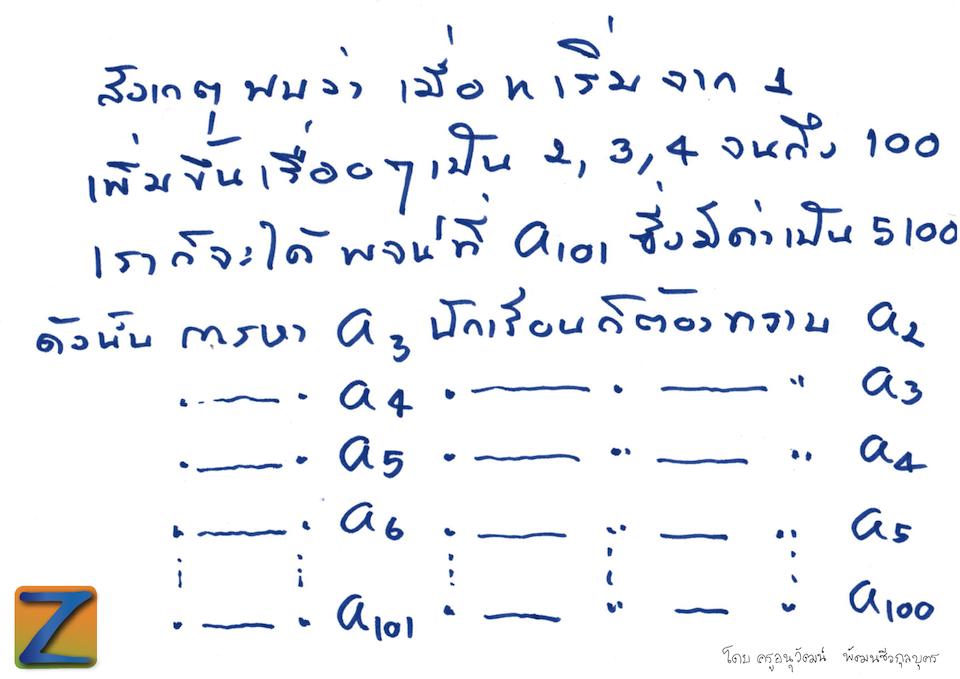 สังเกตุ พบว่า เมื่อ n เริ่ม จาก 1
เพิ่มขึ้นเรื่อย ๆ เป็น 2, 3, 4 จนถึง 100
เราก็จะได้ พจน์ที่ a₁₀₁ ซึ่งมีค่าเป็น 5100
ดังนั้น การหา a₃ นักเรียนก็ต้องทราบ a₂
. — . a₄ . — . — " a₃
. — . a₅ . — " — " a₄
. — . a₆ . — " — " a₅
. — . a₁₀₁ . — " — " a₁₀₀
Z
โดย ครูอนุวัฒน์ พัฒนชีวกุลบุตร